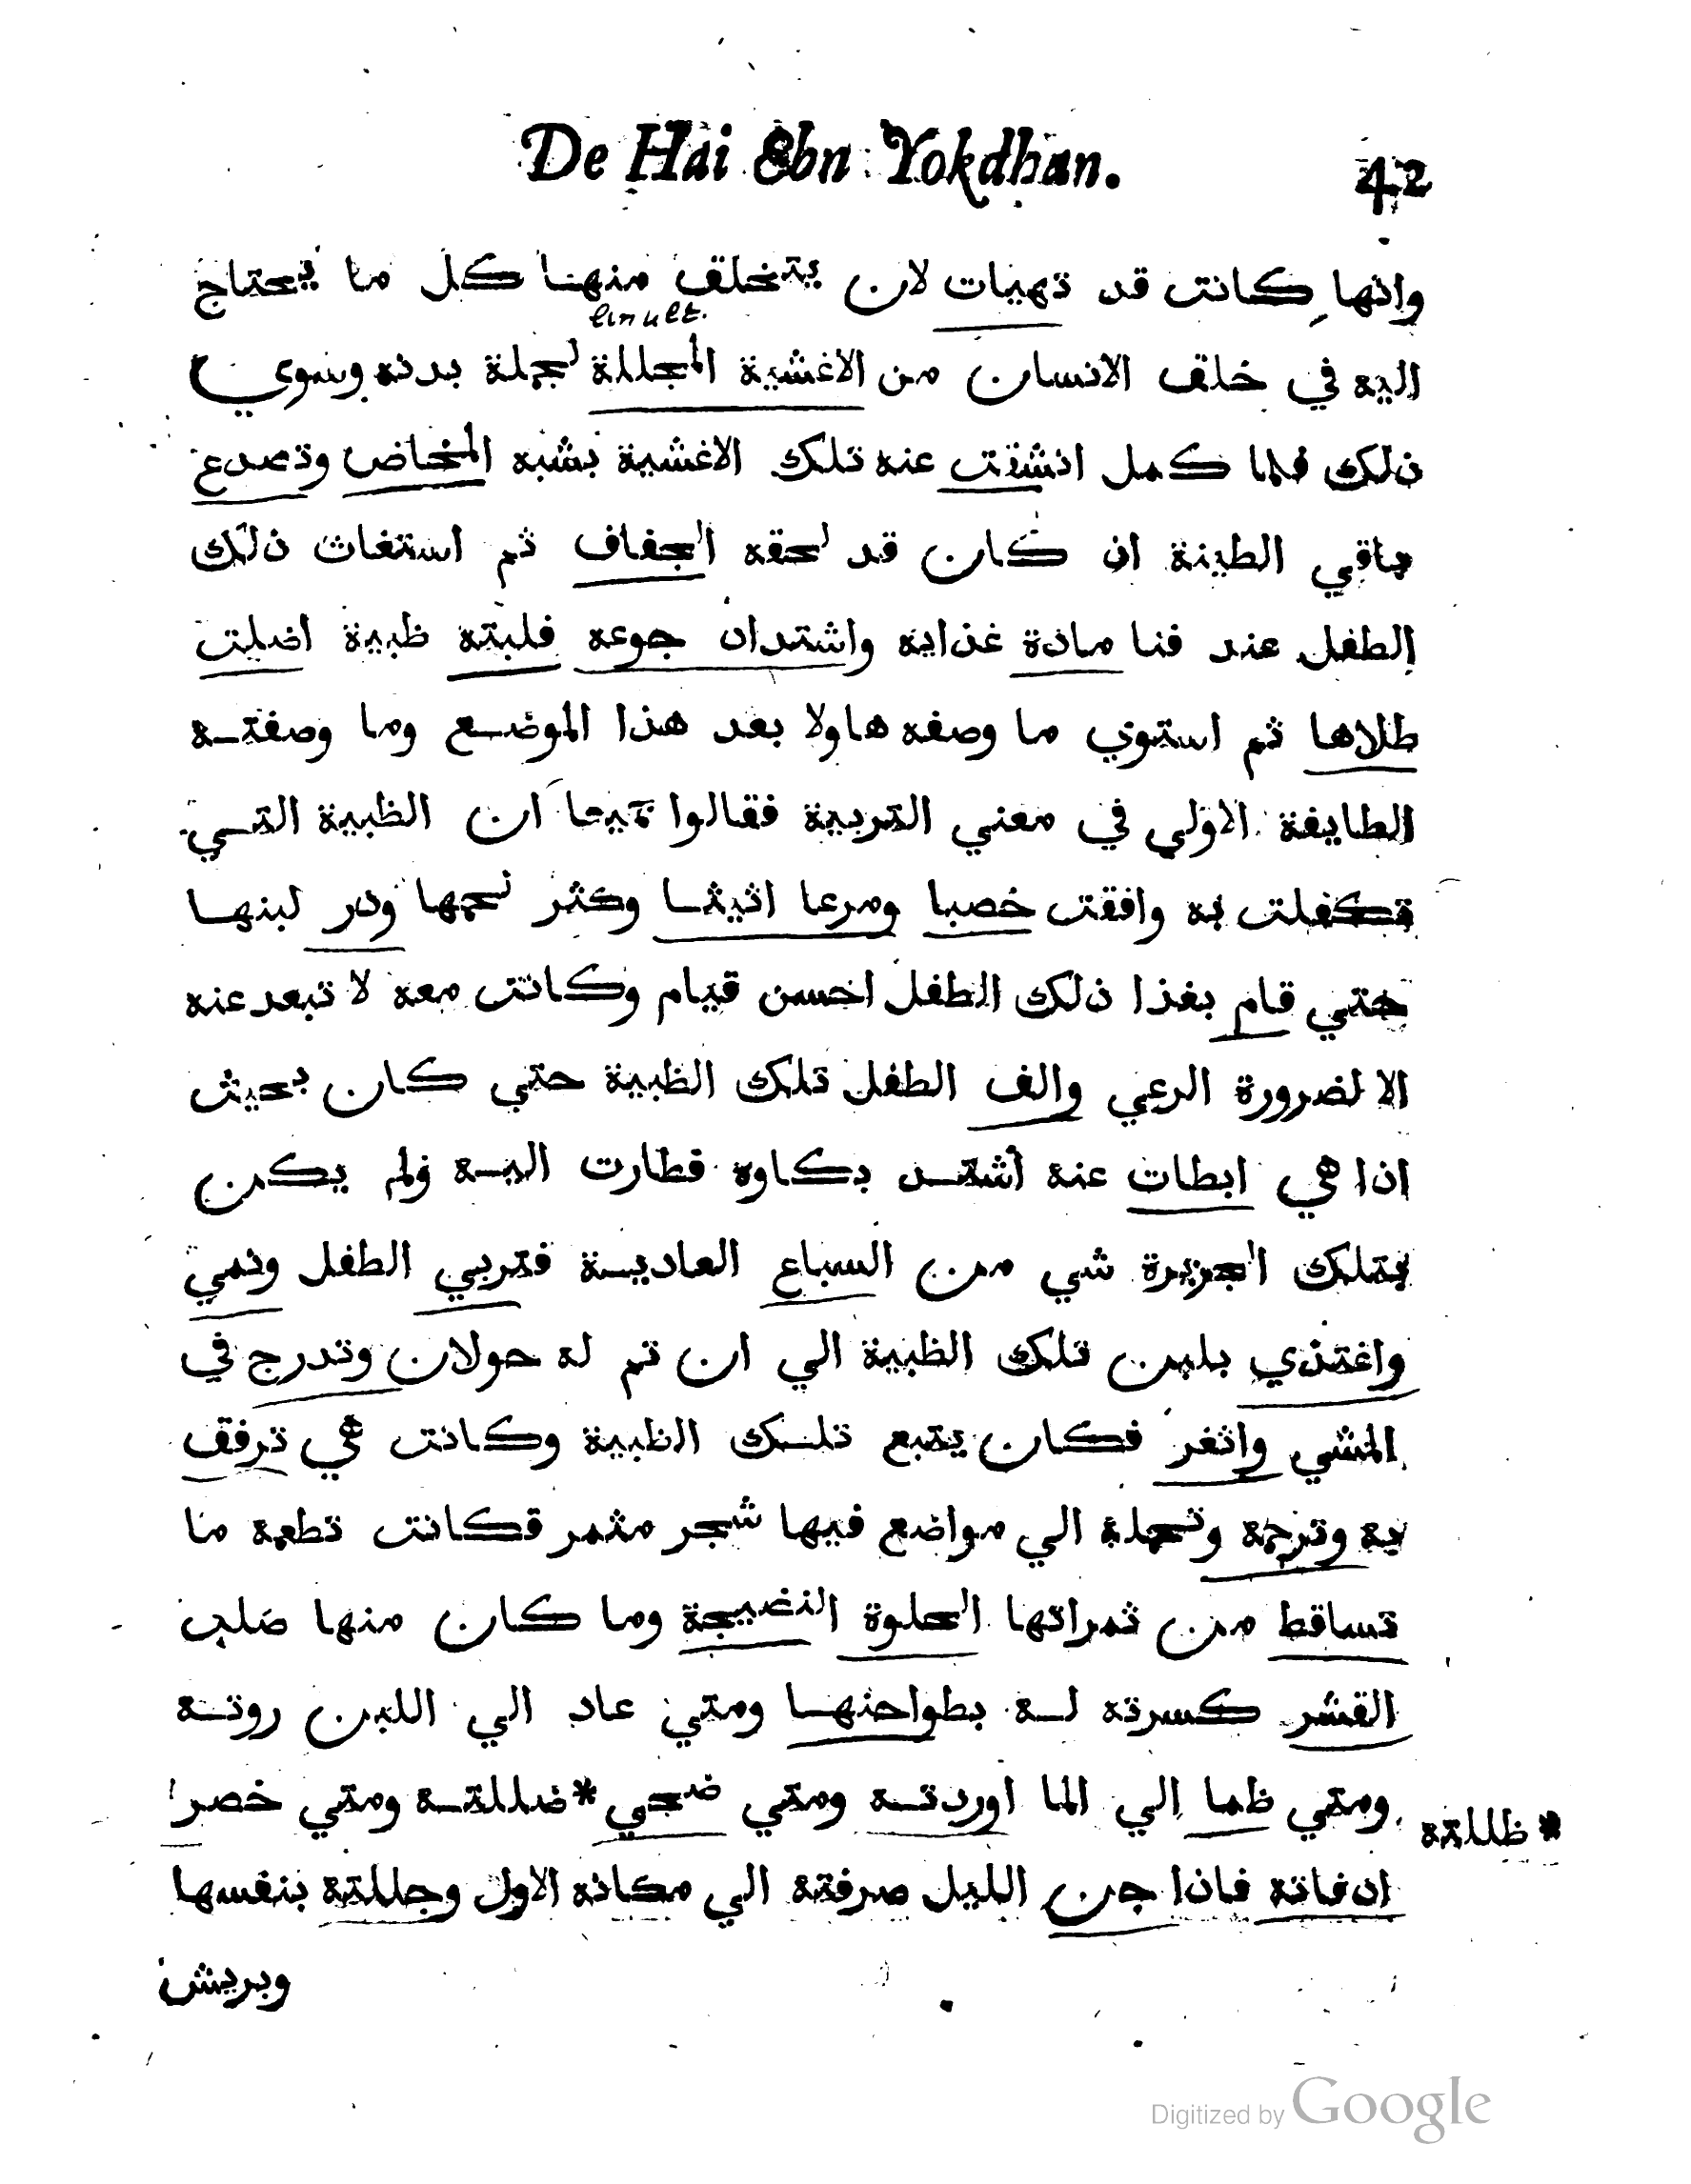 De Hai Ebn Yokdhan. 42
وانها كانت قد تهيات لان يتخلق منها كل ما يحتاج
linult.
اليه في خلق الانسان من الاغشية المجللة لجملة بدنه وسوي
ذلك فلما كمل انشقت عنه تلك الاغشية بشبه المخاض وتصدع
باقي الطينة ان كان قد لحقه الجفاف ثم استغاث ذلك
الطفل عند فنا مادة غذايه واشتدان جوعه فلبته ظبية اضلت
طلاها ثم استوي ما وصفه هاولا بعد هذا الموضع وما وصفته
الطايفة الاولي في معني التربية فقالوا جميعا ان الظبية التي
تكفلت به وافقت خصبا ومرعا اثيثا وكثر لحمها ودر لبنها
حتي قام بغذا ذلك الطفل احسن قيام وكانت معه لا تبعد عنه
الا لضرورة الرعي والف الطفل تلك الظبية حتي كان بحيث
اذا هي ابطات عنه اشتد بكاوه فطارت اليه ولم يكن
بتلك الجزيرة شي من السباع العادية فتربي الطفل ونمي
واغتذي بلبن تلك الظبية الي ان تم له حولان وتدرج في
المشي واثغر فكان يتبع تلك الظبية وكانت هي ترفق
به وترحمه وتحمله الي مواضع فيها شجر مثمر فكانت تطعمه ما
تساقط من ثمراتها الحلوة النضيجة وما كان منها صلب
القشر كسرته له بطواحنها ومتي عاد الي اللبن روته
ومتي ظما الي الما اوردته ومتي ضحي *ضللته ومتي خصر
* ظللته
ادفاته فاذا جن الليل صرفته الي مكانه الاول وجللته بنفسها
وبريش
Digitized by Google